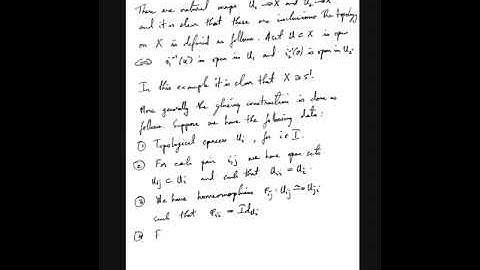 There are natural maps U₁ → X and U₂ → X
and it is clear that these are inclusions. The topology
on X is defined as follows. A set U ⊂ X is open
⟺ i₁⁻¹(U) is open in U₁ and i₂⁻¹(U) is open in U₂.
In this example it is clear that X ≅ S¹!
More generally the gluing construction is done as
follows. Suppose we have the following data:
① Topological spaces Uᵢ, for i ∈ I.
② For each pair i,j we have open sets
Uᵢⱼ ⊂ Uᵢ and such that Uᵢᵢ = Uᵢ.
③ We have homeomorphisms φᵢⱼ : Uᵢⱼ ≃ Uⱼᵢ
such that φᵢᵢ = Id_Uᵢ
④ F